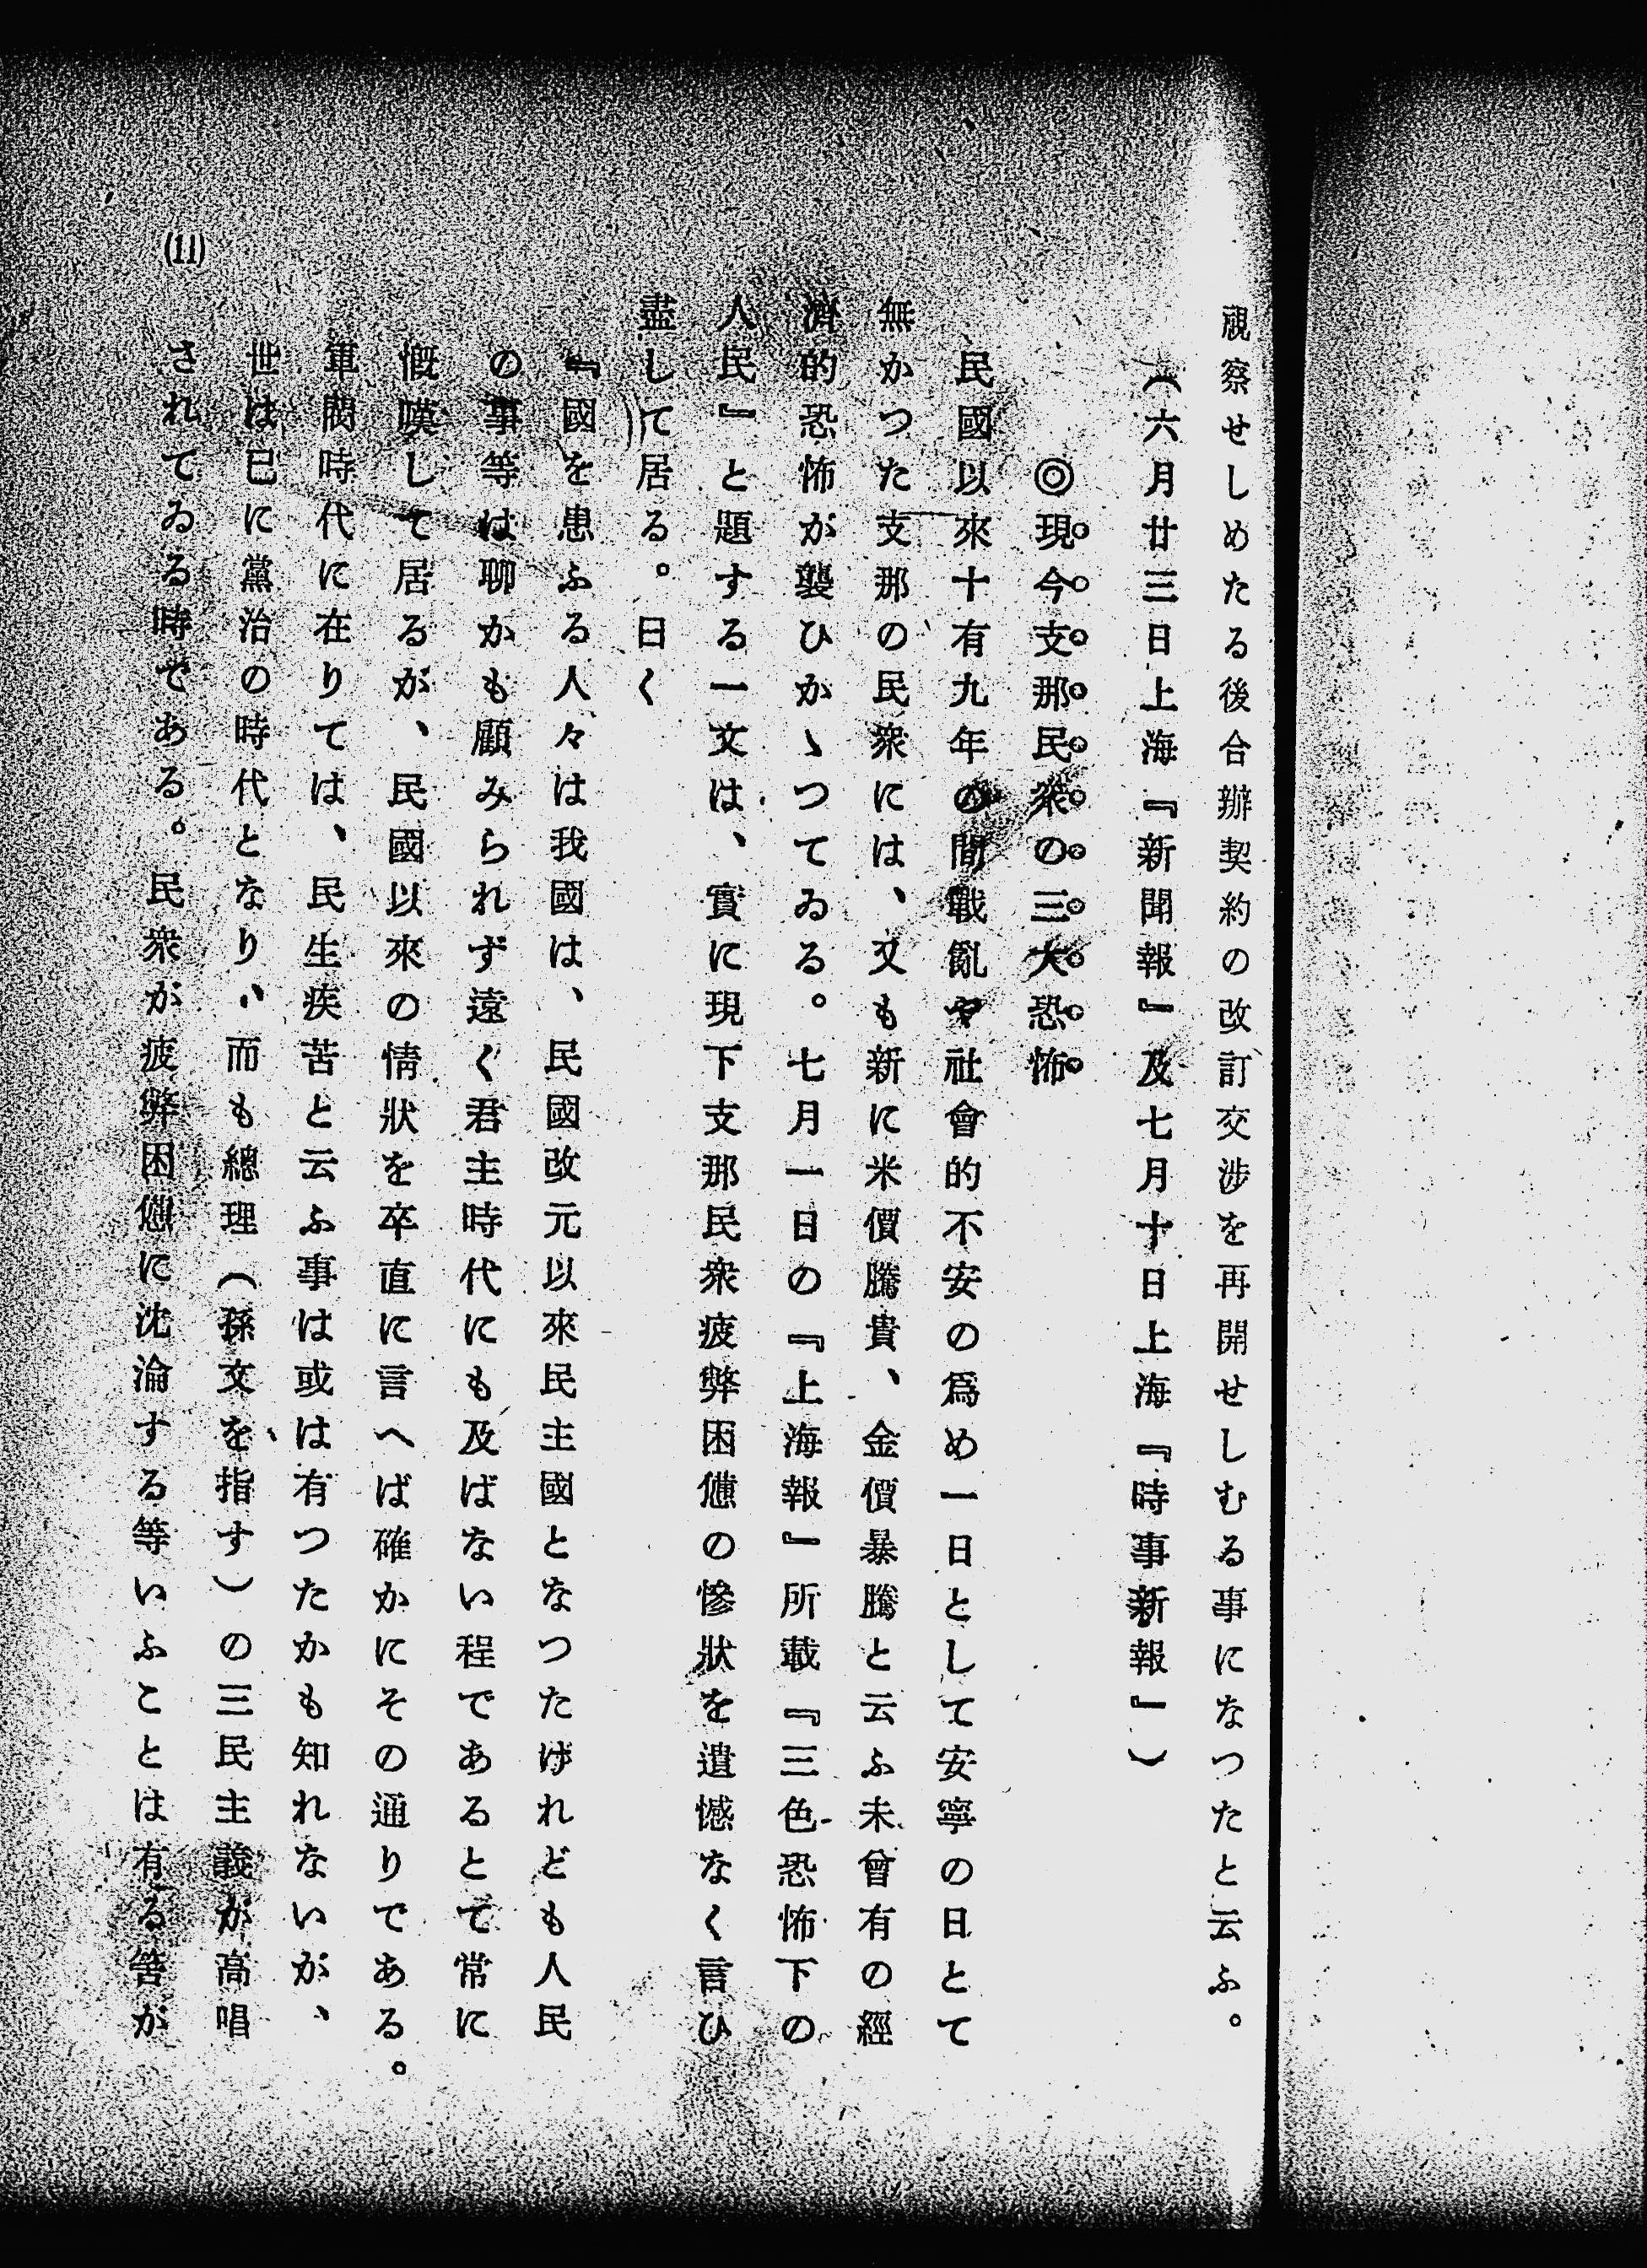 視察せしめたる後合辦契約の改訂交渉を再開せしむる事になつたと云ふ。
(六月廿三日上海『新聞報』及七月十日上海『時事新報』)
◎現今支那民衆の三大恐怖
民國以來十有九年の間戰亂や社會的不安の爲め一日として安寧の日とて
無かつた支那の民衆には、又も新に米價騰貴、金價暴騰と云ふ未曾有の經
濟的恐怖が襲ひかゝつてゐる。七月一日の『上海報』所載『三色恐怖下の
人民』と題する一文は、實に現下支那民衆疲弊困憊の慘狀を遺憾なく言ひ
盡して居る。曰く
『國を患ふる人々は我國は、民國改元以來民主國となつたけれども人民
の事等は聊かも顧みられず遠く君主時代にも及ばない程であるとて常に
慨嘆して居るが、民國以來の情狀を卒直に言へば確かにその通りである。
軍閥時代に在りては、民生疾苦と云ふ事は或は有つたかも知れないが、
世は已に黨治の時代となり、而も總理(孫文を指す)の三民主義が高唱
されてゐる時である。民衆が疲弊困憊に沈淪する等いふことは有る筈が
(11)